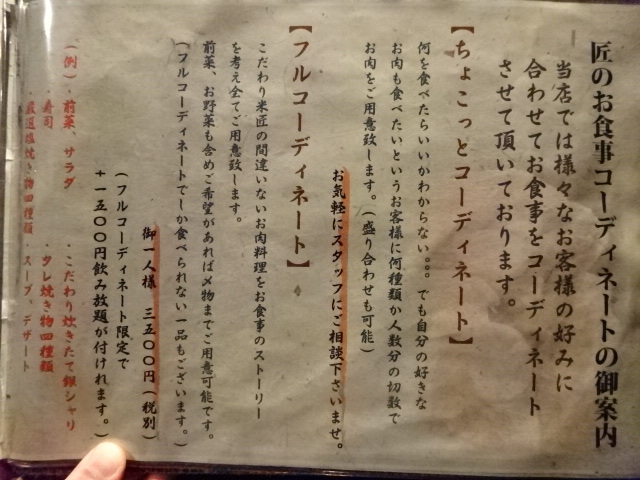 匠のお食事コーディネートの御案内
当店では様々なお客様の好みに
合わせてお食事をコーディネート
させて頂いております。
【ちょこっとコーディネート】
何を食べたらいいかわからない。。。でも自分の好きな
お肉も食べたいというお客様に何種類か人数分の切数で
お肉をご用意致します。(盛り合わせも可能)
お気軽にスタッフにご相談下さいませ。
【フルコーディネート】
こだわり米匠の間違いないお肉料理をお食事のストーリー
を考え全てご用意致します。
前菜、お野菜も含めご希望があれば〆物までご用意可能です。
(フルコーディネートでしか食べられない一品もございます。)
御一人様 三五〇〇円(税別)
(フルコーディネート限定で
+一五〇〇円飲み放題が付けれます。)
(例)・前菜、サラダ ・こだわり炊きたて銀シャリ
・寿司 ・タレ焼き物四種類
・厳選塩焼き物四種類 スープ、デザート